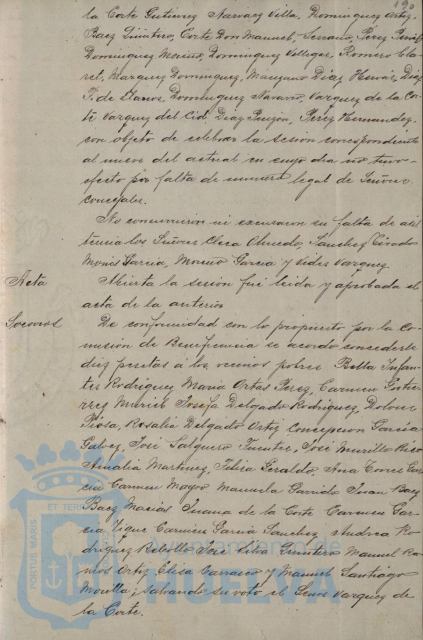 190
la Corte Gutierrez Narvaez Villa, Dominguez Ortiz,
Baez Quintero, Corte Don Manuel, Serrano, Perez
Dominguez Merino, Dominguez Villegas, Romero Cla-
ret, Marquez Dominguez, Manzano Diaz Hervas, Diaz
P. de Llanos, Dominguez Navarro, Vazquez de la Cor-
te Vazquez del Cid, Diaz Pinzon, Perez Hernandez,
con objeto de celebrar la sesion correspondiente
al nueve del actual en cuyo dia no tuvo
efecto por falta de numero legal de Señores
concejales.
No concurrieron ni excusaron su falta de asis-
tencia los Señores Checa Olmedo, Sanchez
Garcia, Moreno Garcia y Vides Vazquez.
Acta
Abierta la sesion fué leida y aprobada el
acta de la anterior.
Socorros
De conformidad con lo propuesto por la Co-
mision de Beneficencia se acordo concederle
diez pesetas á los vecinos pobres Bella Infan-
tes Rodriguez, Maria Ortas Perez, Carmen Gutie-
rrez Josefa Delgado Rodriguez, Dolores
Rosalia Delgado Ortiz Concepcion Garcia
Galvez, José Salguero Fuentes, José Murillo Rico
Amalia Martinez, Giraldo, Ana Gar-
cia Carmen Mayor Manuela Garrido Juan Baez
Baez Macias Juana de la Corte Carmen Gar-
cia Carmen Garcia Sanchez Andrea Ro-
driguez Rebollo José Silva Quintero Manuel Ra-
mos Ortiz Elisa Carrasco y Manuel Santiago
Morilla; salvando su voto el Señor Vazquez de
la Corte.
PORTUS MARIS ET TERRAE
Ayuntamiento de
HUELVA